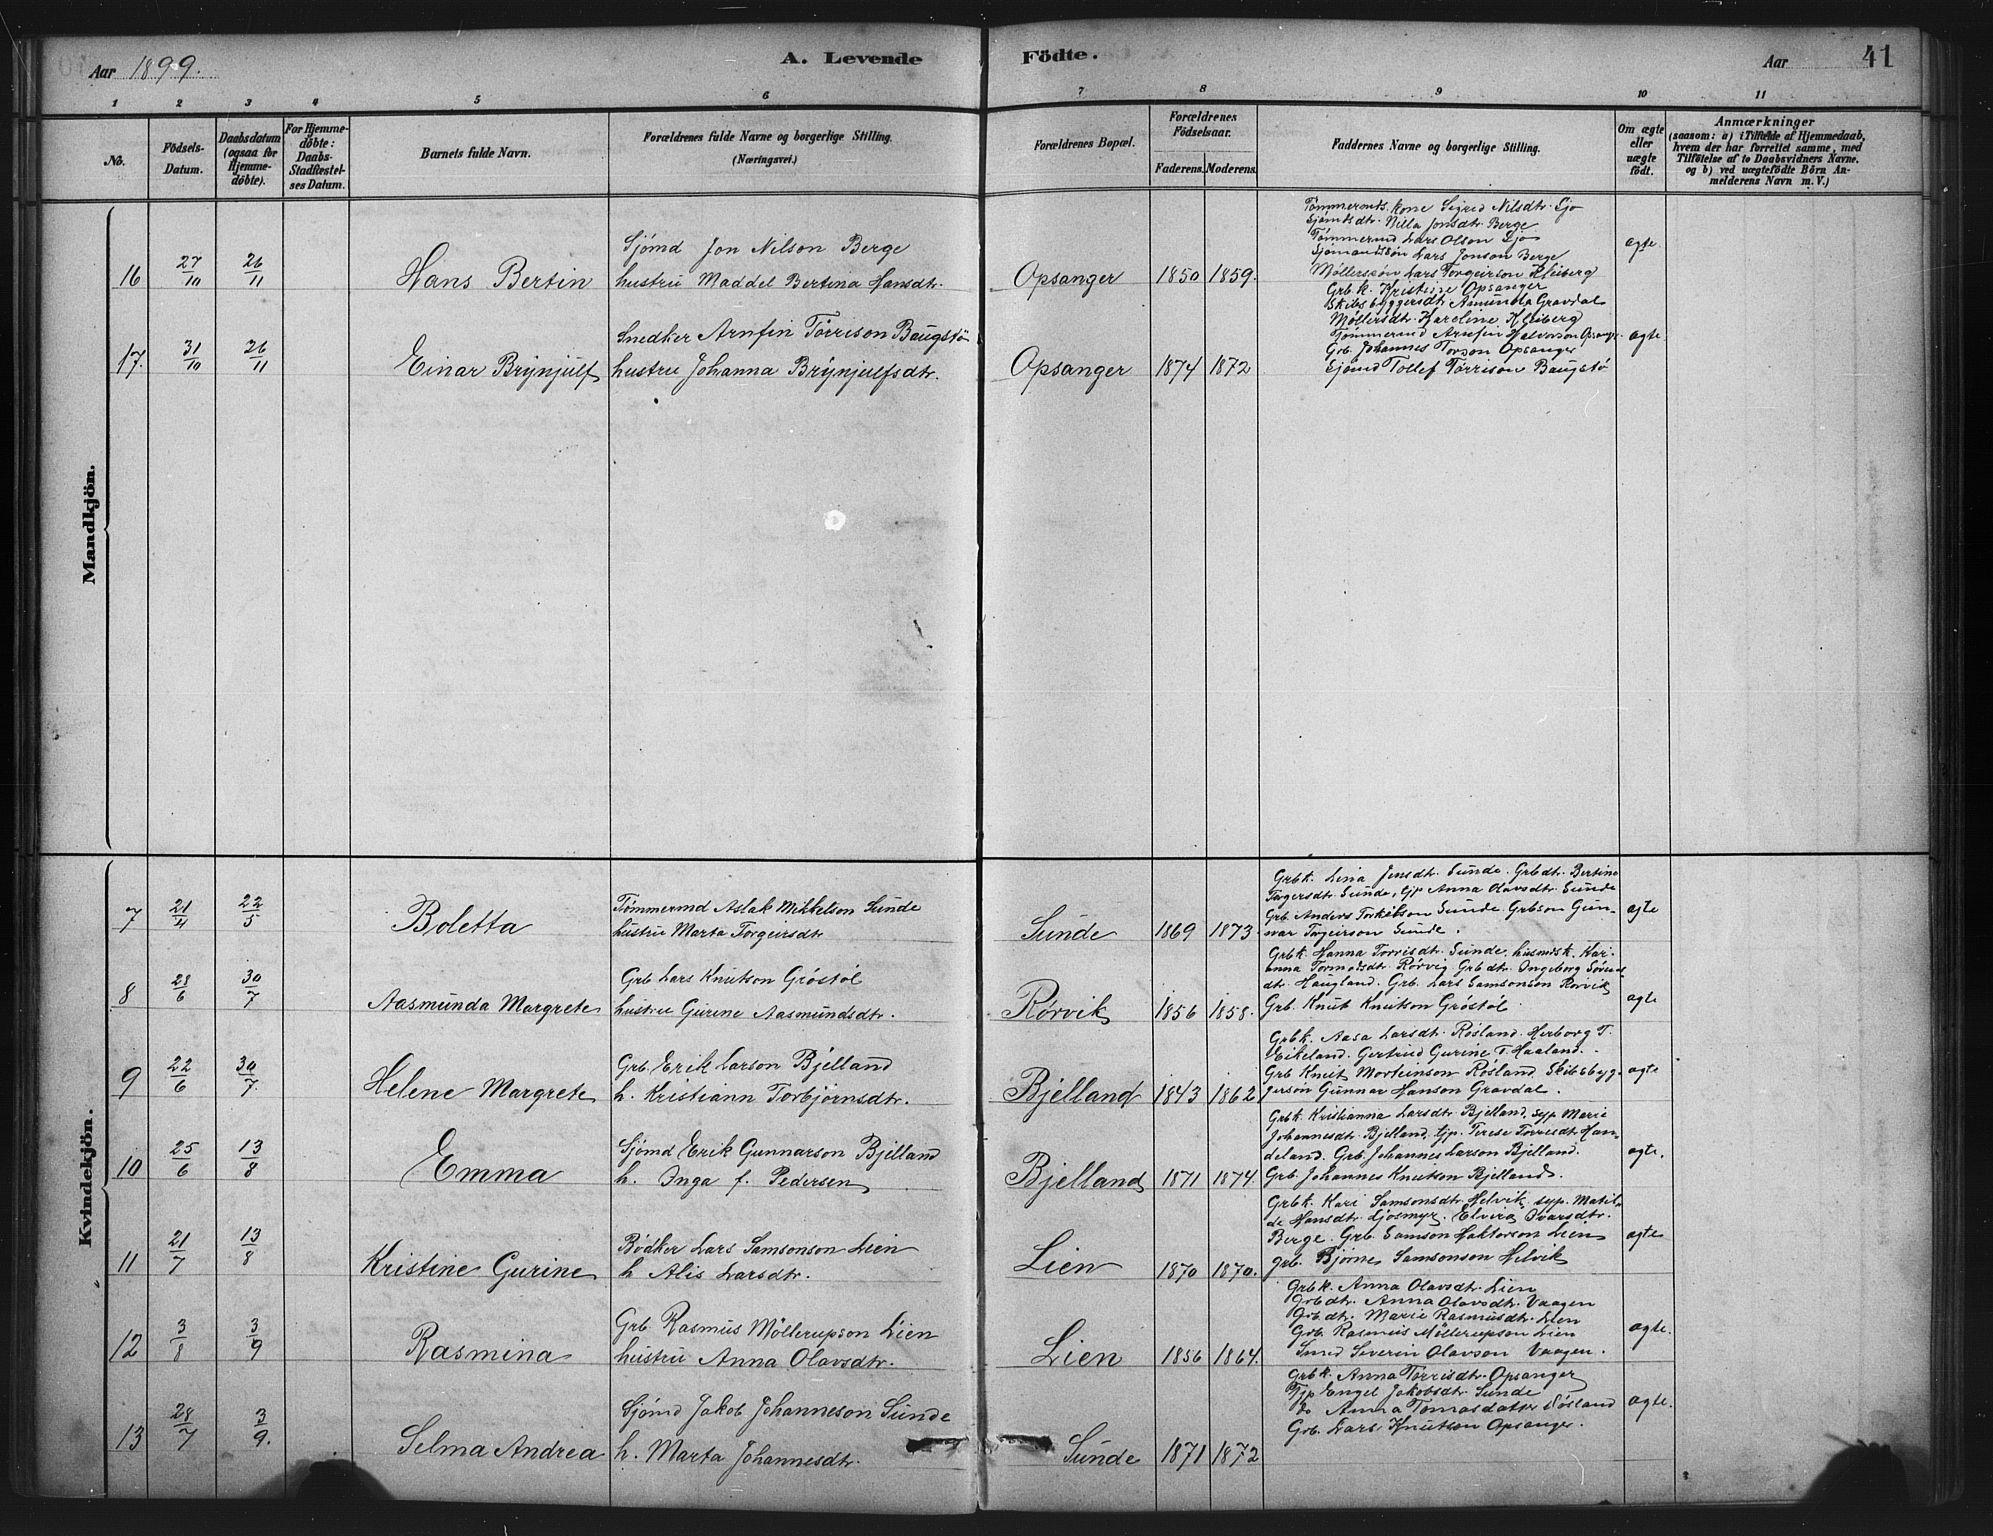 Aar 1899. A. Levende Födte. Aar 41
1 2 3 4 5 6 7 8 9 10 11
No.
Födsels-
Datum.
Daabsdatum
(ogsaa for
Hjemme-
döbte).
For Hjemme-
döbte:
Daabs-
Stadfæstel-
ses Datum.
Barnets fulde Navn.
Forældrenes fulde Navne og borgerlige Stilling.
(Næringsvei.)
Forældrenes Bopæl.
Forældrenes
Födselsaar.
Faderens. Moderens.
Faddernes Navne og borgerlige Stilling.
Om ægte
eller
uægte
født.
Anmærkninger
(saasom: a) i Tilfælde af Hjemmedaab,
hvem der har forrettet samme, med
Tilföielse af to Daabsvidners Navne.
og b) ved uægtefödte Börn An-
melderens Navn m.V.)
Mandkjön.
16 27/10 26/11 Hans Bertin
Sjømd Jon Nilson Berge
hustru Maddel Bertina Hansdtr.
Opsanger 1850 1859.
Tømmermds. kone Sigrid Nilsdtr. Sjo
Sjømdsdtr. Villa Jonsdtr. Berge
Tømmermd Lars Olson Sjo
Sjømandssøn Lars Jonson Berge
Møllersøn Lars Torgeirson Kleiberg
ægte
17. 31/10 26/11 Einar Brynjulf
Snedker Arnfin Tørrison Baugstø
hustru Johanna Brynjulfsdtr.
Opsanger 1874 1872
Grb.k. Kristine Opsanger
Skibsbyggersdtr. Amunda Gravdal
Møllersdtr. Karoline Kleiberg
Tømmermd Arnfin Halvorson Opsang.
Grb. Johannes Torson Opsanger
Sjømd Tollef Tørrison Baugstø
ægte
Kvindekjön.
7 21/4 22/5 Boletta
Tømmermd Aslak Mikkelson Sunde
hustru Marta Torgeirsdtr
Sunde 1869 1873.
Grbk. Lina Jensdtr. Sunde. Grbdtr. Bertine
Torgersdtr Sunde, tjp Anna Olavsdtr. Sunde
Grb. Anders Torkelson Sunde. Grbson Gun-
nar Torgeirson Sunde.
ægte
8 28/6 30/7 Aasmunda Margrete
Grb Lars Knutson Grøstøl
hustru Gurine Aasmundsdtr.
Rørvik 1856 1858.
Grbk. Hanna Torrisdtr. Sunde. husmdsk. Kari-
anna Tormodsdtr. Rørvig Grbdtr. Ingeborg
dtr. Haugland. Grb. Lars Samsonson Rorvik
Grb. Knut Knutson Grøstøl.
ægte
9 22/6 30/7. Helene Margrete
Grb. Erik Larson Bjelland
h. Kristiann Torbjørnsdtr.
Bjelland 1843 1862
Grbk. Aasa Larsdtr. Røsland. Herborg T.
Eikeland. Gertrud Gurine T. Haaland.
Grb Knut Morteinson Røsland Skibsbyg-
gersøn Gunnar Hanson Gravdal.
ægte
10 25/6 13/8 Emma
Sjømd Erik Gunnarson Bjelland
h. Inga f. Pedersen
Bjelland 1871 1874.
Grbk. Kristianna Larsdtr. Bjelland, syp. Marie
Johannesdtr. Bjelland, tjp. Terese Torresdtr. Han-
deland. Grb. Johannes Larson Bjelland.
Grb. Johannes Knutson Bjelland.
ægte.
11 21/7 13/8 Kristine Gurine
Bødker Lars Samsonson Lien
h Alis Larsdtr.
Lien 1870 1870.
Grbk. Kari Samsonsdtr. Helvik. syp. Matil-
de Hansdtr. Ljosmyr. Elvira Ivarsdtr.
Berge. Grb. Samson Haktorson Lien
grb. Bjørne Samsonson Helvik
ægte
12 3/8 3/9 Rasmina
Grb. Rasmus Möllerupson Lien
hustru Anna Olavsdtr.
Lien 1856 1864.
Grbk. Anna Olavsdtr. Lien
Grbdtr. Anna Olavsdtr. Vaagen
Grb. dtr. Marie Rasmusdtr. Lien
Grb. Rasmus Möllerupson Lien
Smed Severin Olavson Vaagen.
ægte.
13 28/7 3/9. Selma Andrea
Sjømd Jakob Johanneson Sunde
h. Marta Johannesdtr.
Sunde 1871 1872
Grbk. Anna Torrisdtr. Opsanger
Tjp Engel Jakobsdtr Sunde
Do Anna Tomasdatter Røsland
Grb. Lars Knutson Opsanger.
ægte.